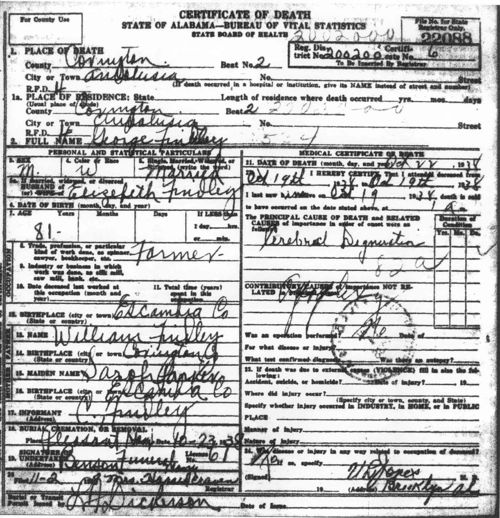 CERTIFICATE OF DEATH
For County Use
STATE OF ALABAMA—BUREAU OF VITAL STATISTICS
STATE BOARD OF HEALTH
File No. for State Registrar Only.
22088
2002000
1. PLACE OF DEATH
Reg. District No. 200200 Certificate No. 6
To Be Inserted By Registrar
County Covington Beat No. 2
City or Town Andalusia No. Street
R.F.D. 4 (If death occurred in a hospital or institution, give its NAME instead of street and number)
1a. PLACE OF RESIDENCE: State Length of residence where death occurred yrs. mos. days
(Usual place of abode)
County Covington Beat 2
City or Town Andalusia No. Street
R.F.D. 4
2. FULL NAME George Findley
PERSONAL AND STATISTICAL PARTICULARS
3. SEX M. 4. Color or Race W 5. Single, Married, Widowed, or Divorced (write the word) Married
5a. If married, widowed, or divorced
HUSBAND of Elisebeth Findley
6. DATE OF BIRTH (month, day, and year)
7. AGE Years Months Days If LESS than
1 day, hrs.
or min.
81-
8. Trade, profession, or particular kind of work done, as spinner, sawyer, bookkeeper, etc. Farmer
9. Industry or business in which work was done, as silk mill, saw mill, bank, etc.
10. Date deceased last worked at this occupation (month and year) 11. Total time (years) spent in this occupation
12. BIRTHPLACE (city or town) Escambia Co
(State or country)
13. NAME William Findley
14. BIRTHPLACE (city or town) Covington
(State or country)
15. MAIDEN NAME Sarah Parker
16. BIRTHPLACE (city or town) Escambia Co
(State or country)
17. INFORMANT Findley
(Address)
18. BURIAL, CREMATION, OR REMOVAL
Place Pleasant Home Date 10-23-38
SIGNATURE OF
19. UNDERTAKER Benson Funeral License No. 61
(Address)
20. Filed 11-2 Mrs.
Registrar
Burial or Transit
Permit Issued by Dickinson Date of Issue
MEDICAL CERTIFICATE OF DEATH
21. DATE OF DEATH (month, day, and year) Oct 22 1938
I HEREBY CERTIFY That I attended deceased from
Oct 19th 1938 to Oct 19th 1938
I last saw alive on Oct 19 1938 death is said
to have occurred on the date stated above, at
The PRINCIPAL CAUSE OF DEATH and RELATED CAUSES of importance in order of onset were as follows:
Duration of Condition
Yrs. Mo. Ds.
Cerebral Degneration
82a
CONTRIBUTORY CAUSES of importance NOT RELATED
Was an operation performed? No Date of
For what disease or injury?
What test confirmed diagnosis? Was there an autopsy?
23. If death was due to external causes (VIOLENCE) fill in also the following:
Accident, suicide, or homicide? Date of injury? 19
Where did injury occur?
(Specify city or town, county, and State)
Specify whether injury occurred in INDUSTRY, in HOME, or in PUBLIC
PLACE
Manner of injury
Nature of injury
24. Was disease or injury in any way related to occupation of deceased?
No If so, specify
(Signed) Jones
19 (Address) Brooklyn Al